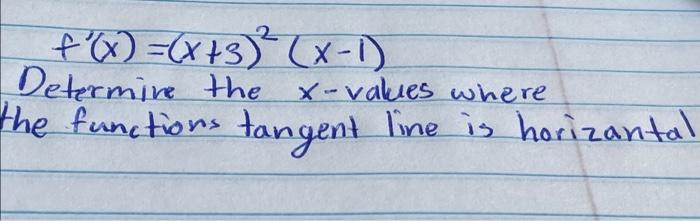 f'(x) = (x+3)² (x-1)
Determine the x-values where
the functions tangent line is horizantal